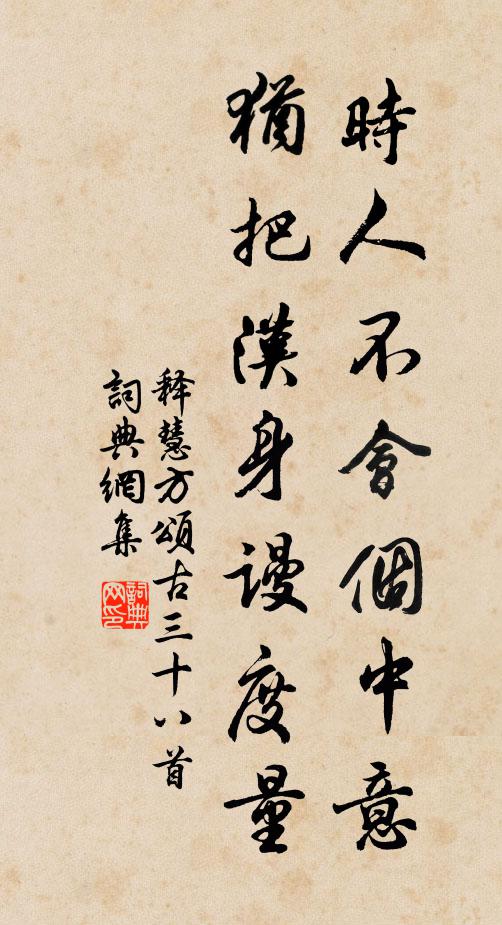 時人不會個中意
猶把漢身謾度量
释慧方頌古三十八首
詞典網集
詞典
网印